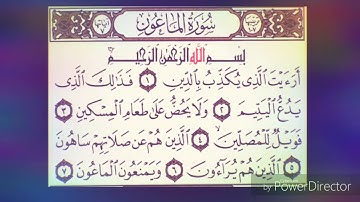 سُورَةُ الْمَاعُونِ
بِسْمِ اللَّهِ الرَّحْمَٰنِ الرَّحِيمِ
أَرَءَيْتَ الَّذِى يُكَذِّبُ بِالدِّينِ ١ فَذَٰلِكَ الَّذِى
يَدُعُّ الْيَتِيمَ ٢ وَلَا يَحُضُّ عَلَىٰ طَعَامِ الْمِسْكِينِ ٣
فَوَيْلٌ لِّلْمُصَلِّينَ ٤ الَّذِينَ هُمْ عَن صَلَاتِهِمْ سَاهُونَ
٥ الَّذِينَ هُمْ يُرَاءُونَ ٦ وَيَمْنَعُونَ الْمَاعُونَ ٧
by PowerDirector